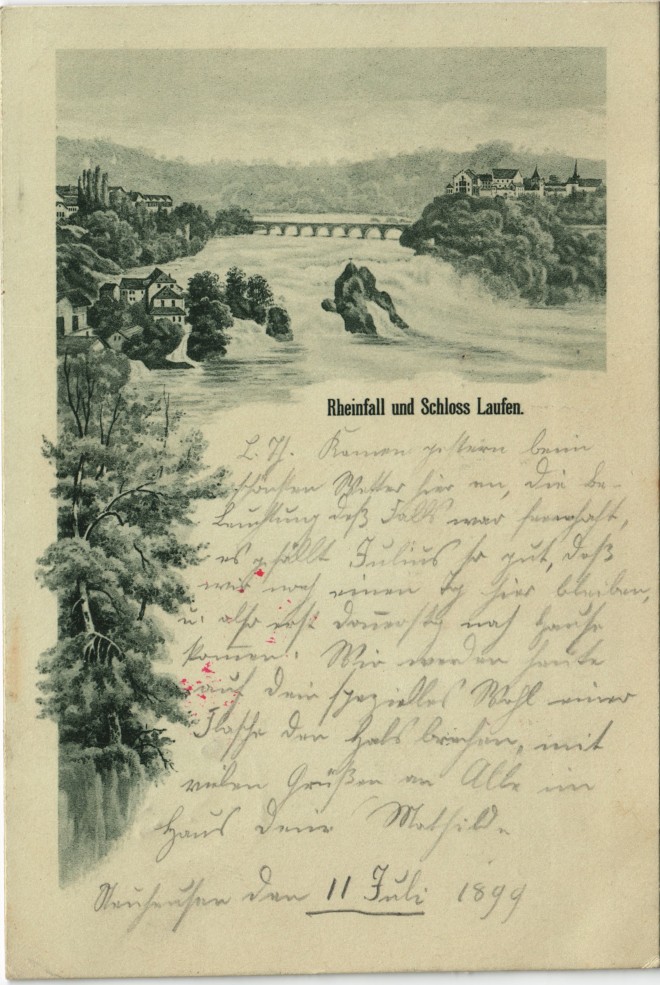 Rheinfall und Schloss Laufen.
L. Th. Kamen gestern beim
schönsten Wetter hier an, die Be-
leuchtung deß Falls war feenhaft,
es gefällt Julius so gut, daß
wir noch einen Tg hier bleiben,
u. also erst Donnerstg nach Hause
kommen. Wir werden heute
auf Dein spezielles Wohl einer
Flasche den Hals brechen, mit
vielen Grüßen an Alle im
Haus Deine Mathilde
Neuhausen den 11 Juli 1899